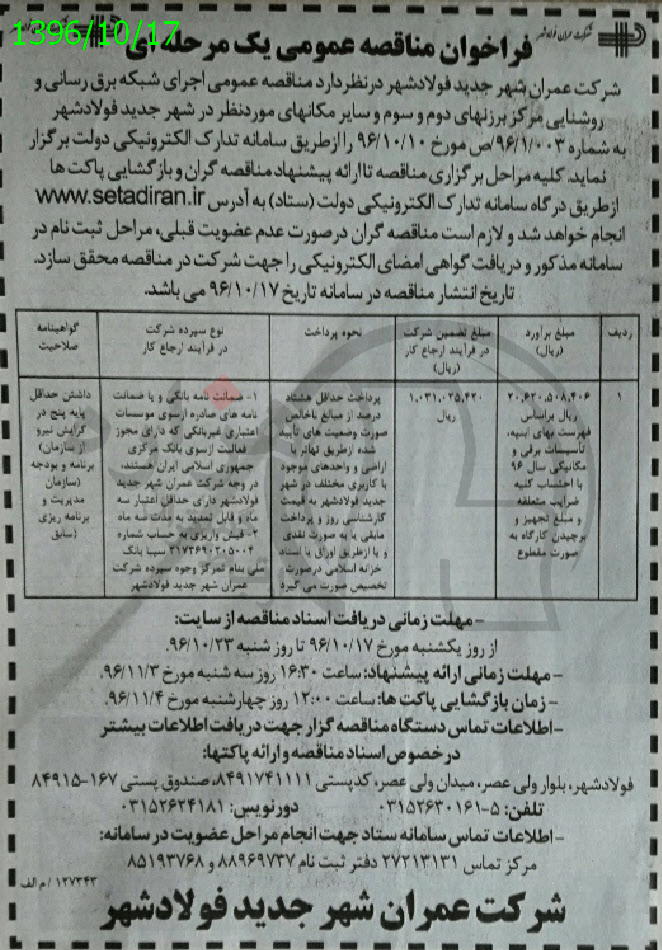 1396/10/17
شرکت عمران فولادشهر
فراخوان مناقصه عمومی یک مرحله ای
شرکت عمران شهر جدید فولادشهر درنظردارد مناقصه عمومی اجرای شبکه برق رسانی و
روشنایی مرکز برزنهای دوم و سوم و سایر مکانهای موردنظر در شهر جدید فولادشهر
به شماره ۹۶/۱/۰۰۳/ص مورخ ۹۶/۱۰/۱۰ را ازطریق سامانه تدارک الکترونیکی دولت برگزار
نماید. کلیه مراحل برگزاری مناقصه تا ارائه پیشنهاد مناقصه گران و بازگشایی پاکت ها
ازطریق درگاه سامانه تدارک الکترونیکی دولت (ستاد) به آدرس www.setadiran.ir
انجام خواهد شد و لازم است مناقصه گران درصورت عدم عضویت قبلی، مراحل ثبت نام در
سامانه مذکور و دریافت گواهی امضای الکترونیکی را جهت شرکت در مناقصه محقق سازد.
تاریخ انتشار مناقصه در سامانه تاریخ ۹۶/۱۰/۱۷ می باشد.
ردیف
مبلغ برآورد
(ریال)
مبلغ تضمین شرکت
در فرآیند ارجاع کار
(ریال)
نحوه پرداخت
نوع سپرده شرکت
در فرآیند ارجاع کار
گواهینامه
صلاحیت
۱
۲۰,۶۲۰,۵۰۸,۴۰۶
ریال براساس
فهرست بهای ابنیه،
تأسیسات برقی و
مکانیکی سال ۹۶
با احتساب کلیه
ضرایب متعلقه
و مبلغ تجهیز و
برچیدن کارگاه به
صورت مقطوع
۱,۰۳۱,۰۲۵,۴۲۰
ریال
پرداخت حداقل هشتاد
درصد از مبالغ ناخالص
صورت وضعیت های تأیید
شده ازطریق تهاتر با
اراضی و واحدهای موجود
با کاربری مختلف در شهر
جدید فولادشهر به قیمت
کارشناسی روز و پرداخت
مابقی یا به صورت نقدی
و یا ازطریق اوراق یا اسناد
خزانه اسلامی درصورت
تخصیص صورت می گیرد
۱- ضمانت نامه بانکی و یا ضمانت
نامه های صادره ازسوی موسسات
اعتباری غیربانکی که دارای مجوز
فعالیت ازسوی بانک مرکزی
جمهوری اسلامی ایران هستند،
در وجه شرکت عمران شهر جدید
فولادشهر دارای حداقل اعتبار سه
ماه و قابل تمدید به مدت سه ماه
۲- فیش واریزی به حساب شماره
۲۱۷۳۶۹۰۲۰۵۰۰۴ سیبا بانک
ملی بنام تمرکز وجوه سپرده شرکت
عمران شهر جدید فولادشهر
داشتن حداقل
پایه پنج در
گرایش نیرو
از سازمان)
برنامه و بودجه
(سازمان
مدیریت و
برنامه ریزی
(سابق
- مهلت زمانی دریافت اسناد مناقصه از سایت:
از روز یکشنبه مورخ ۹۶/۱۰/۱۷ تا روز شنبه ۹۶/۱۰/۲۳.
- مهلت زمانی ارائه پیشنهاد: ساعت ۱۶:۳۰ روز سه شنبه مورخ ۹۶/۱۱/۳.
- زمان بازگشایی پاکت ها: ساعت ۱۲:۰۰ روز چهارشنبه مورخ ۹۶/۱۱/۴.
- اطلاعات تماس دستگاه مناقصه گزار جهت دریافت اطلاعات بیشتر
درخصوص اسناد مناقصه و ارائه پاکتها:
فولادشهر، بلوار ولی عصر، میدان ولی عصر، کدپستی ۸۴۹۱۷۴۱۱۱۱، صندوق پستی ۱۶۷-۸۴۹۱۵
تلفن: ۵-۰۳۱۵۲۶۳۰۱۶۱ دورنویس: ۰۳۱۵۲۶۲۴۱۸۱
- اطلاعات تماس سامانه ستاد جهت انجام مراحل عضویت در سامانه:
مرکز تماس ۲۷۲۱۳۱۳۱ دفتر ثبت نام ۸۸۹۶۹۷۳۷ و ۸۵۱۹۳۷۶۸
۱۲۷۳۴۳ / م الف
شرکت عمران شهر جدید فولادشهر